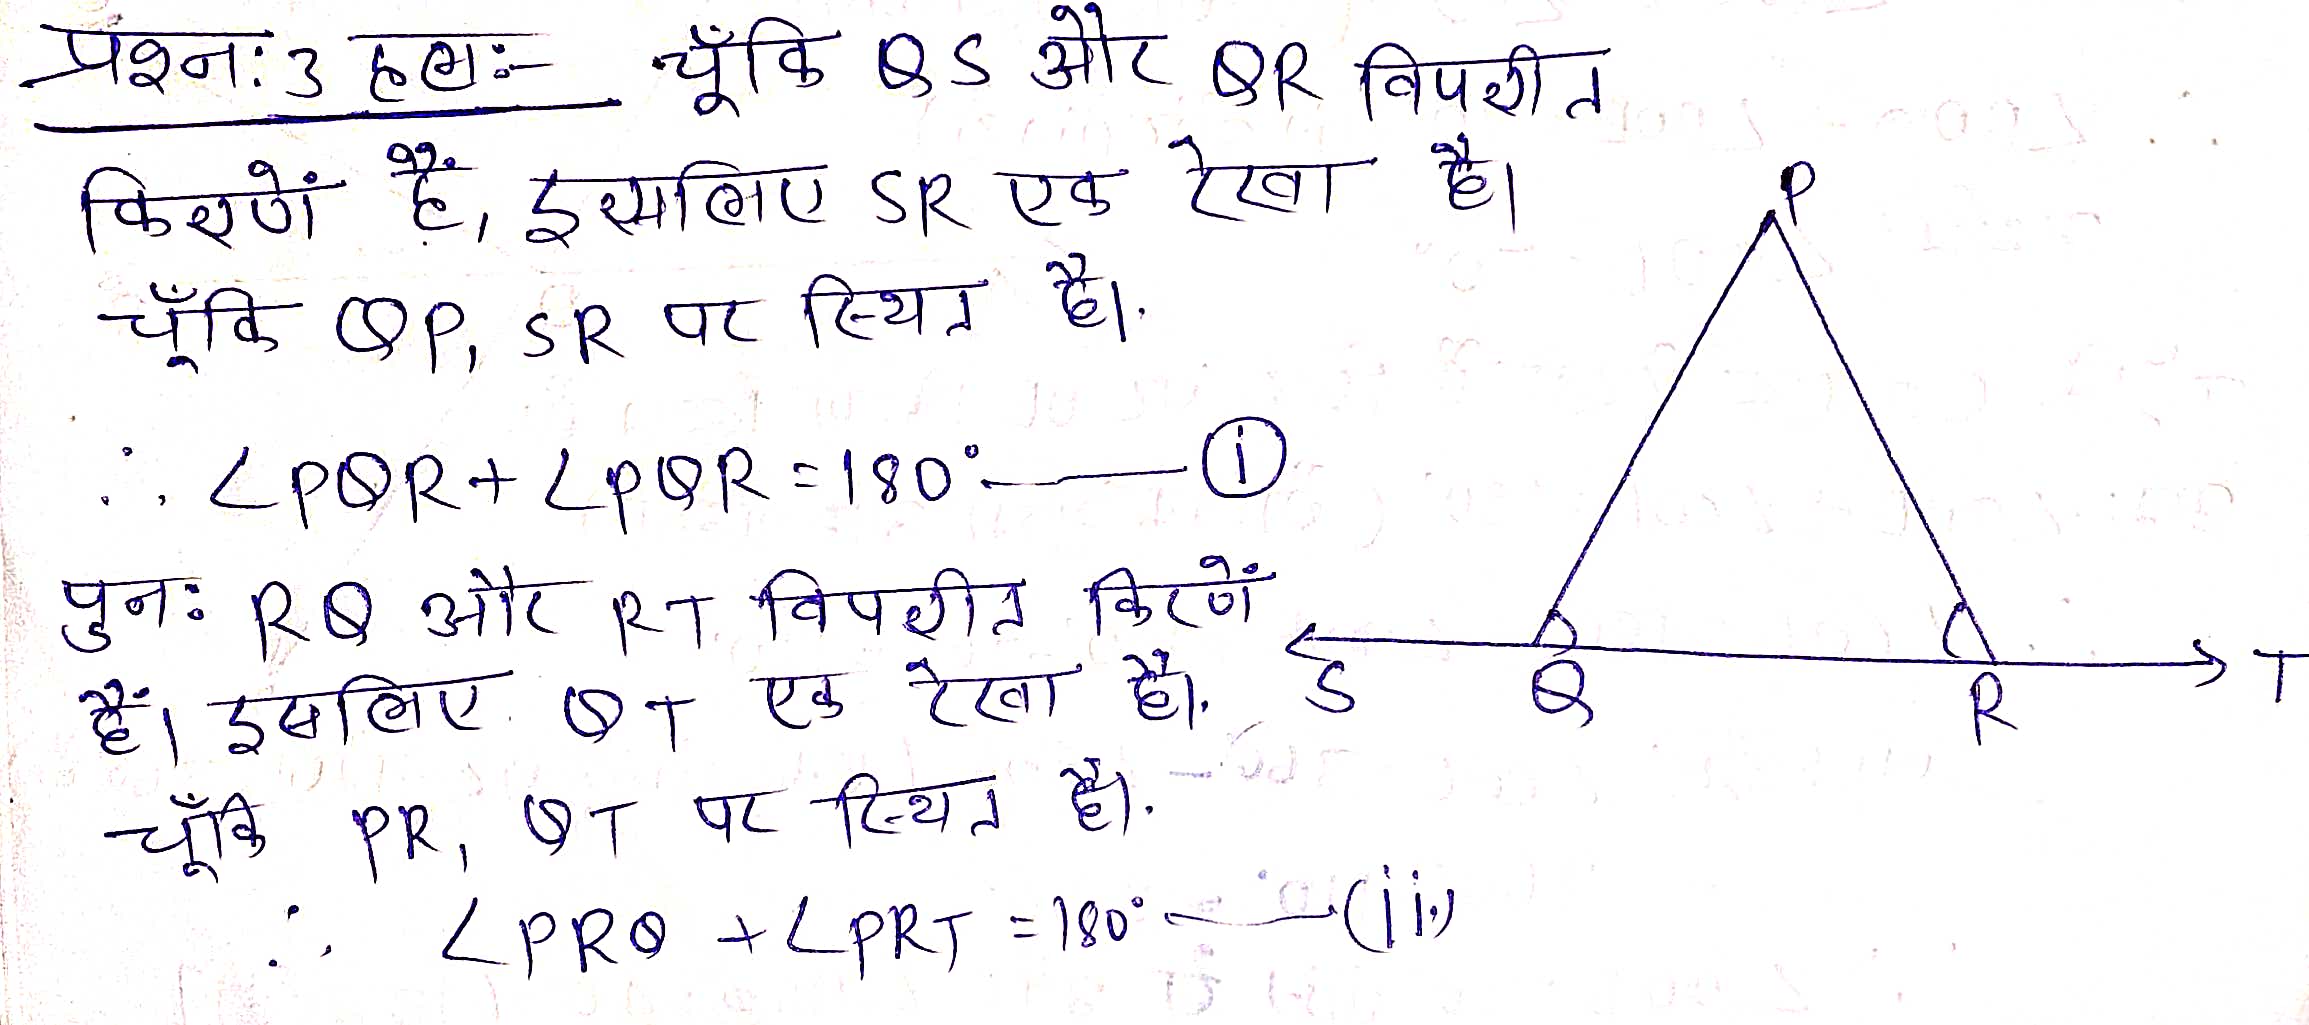 प्रश्न: 3 हल:- चूँकि QS और QR विपरीत
किरणें हैं, इसलिए SR एक रेखा है।
चूँकि QP, SR पर स्थित है।
∴ ∠PQR + ∠PQR = 180° —— (i)
पुनः RQ और RT विपरीत किरणें
हैं। इसलिए QT एक रेखा है।
चूँकि PR, QT पर स्थित है।
∴ ∠PRQ + ∠PRT = 180° —— (ii)
P
S Q R T